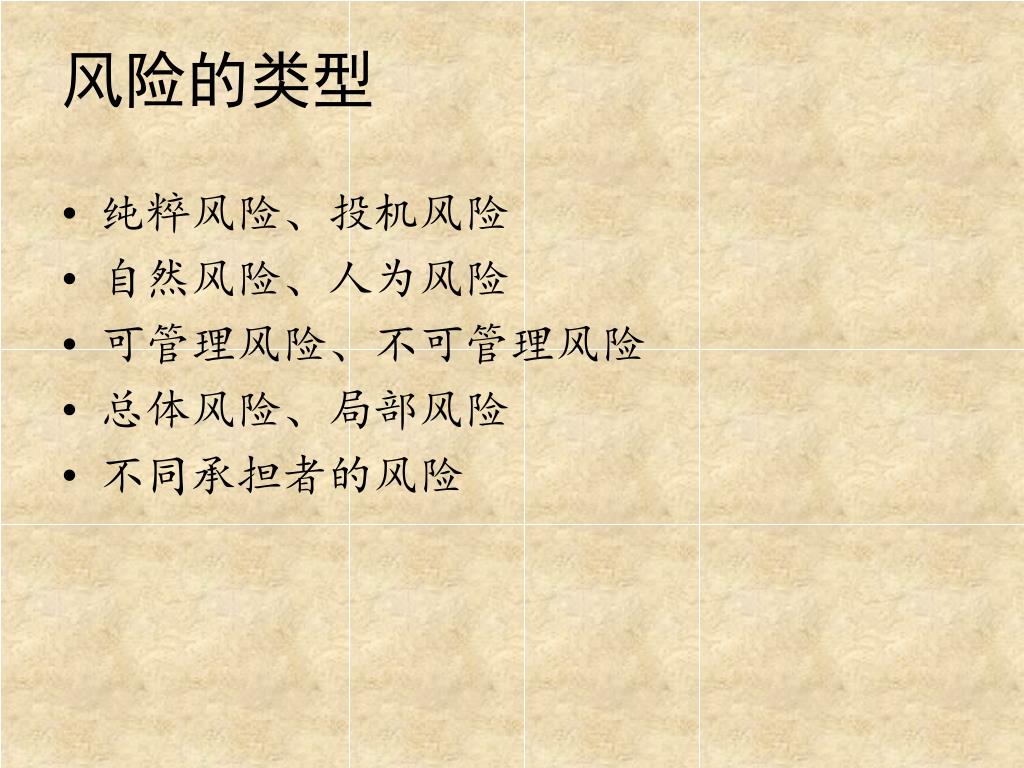 风险的类型
• 纯粹风险、投机风险
• 自然风险、人为风险
• 可管理风险、不可管理风险
• 总体风险、局部风险
• 不同承担者的风险